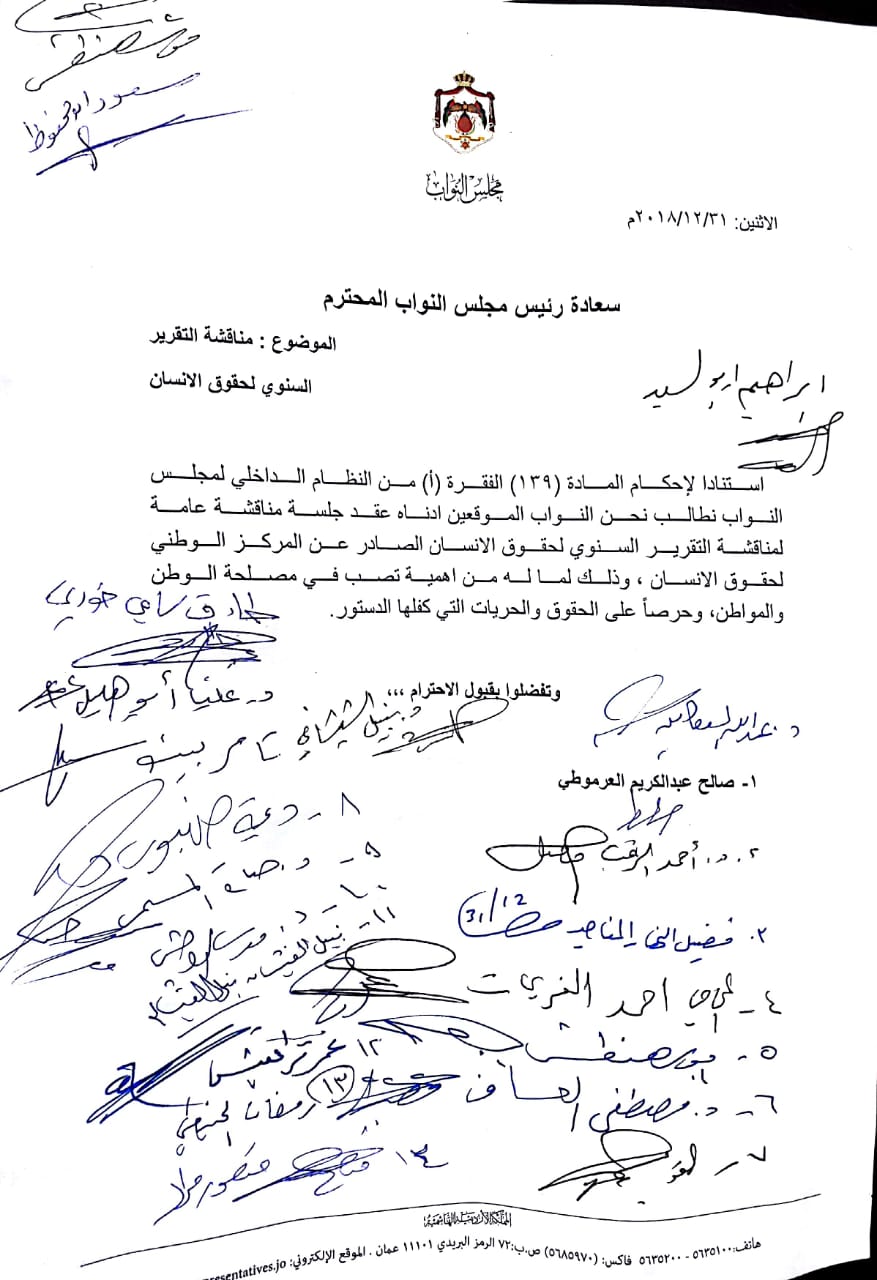 سعود ابو محفوظ
مجلس النواب
الاثنين: ٢٠١٨/١٢/٣١م
سعادة رئيس مجلس النواب المحترم
الموضوع : مناقشة التقرير
السنوي لحقوق الانسان
ابراهيم ابو السيد
استنادا لإحكام المادة (١٣٩) الفقرة (أ) من النظام الداخلي لمجلس
النواب نطالب نحن النواب الموقعين ادناه عقد جلسة مناقشة عامة
لمناقشة التقرير السنوي لحقوق الانسان الصادر عن المركز الوطني
لحقوق الانسان ، وذلك لما له من اهمية تصب في مصلحة الوطن
والمواطن، وحرصاً على الحقوق والحريات التي كفلها الدستور.
طارق سامي خوري
وتفضلوا بقبول الاحترام ،،،
د. عليا أبو هليل
د. نبيل الشيشاني
تامر بينو
د. عبدالله
١- صالح عبدالكريم العرموطي
٢. د. أحمد الرقب
٣. فضيل النهار المناصير 31/12
٤- احمد
٥-
٦- د. مصطفى العساف
٧-
٨-
٩- د.
١٠- د.
١١- نبيل الغيشان
١٢ عمر
١٣ رمضان
١٤ منصور مراد
المملكة الأردنية الهاشمية
هاتف: ٥٦٣٥١٠٠ - ٥٦٣٥٢٠٠ فاكس: (٥٦٨٥٩٧٠) ص.ب: ٧٢ الرمز البريدي ١١١٠١ عمان . الموقع الإلكتروني: presentatives.jo